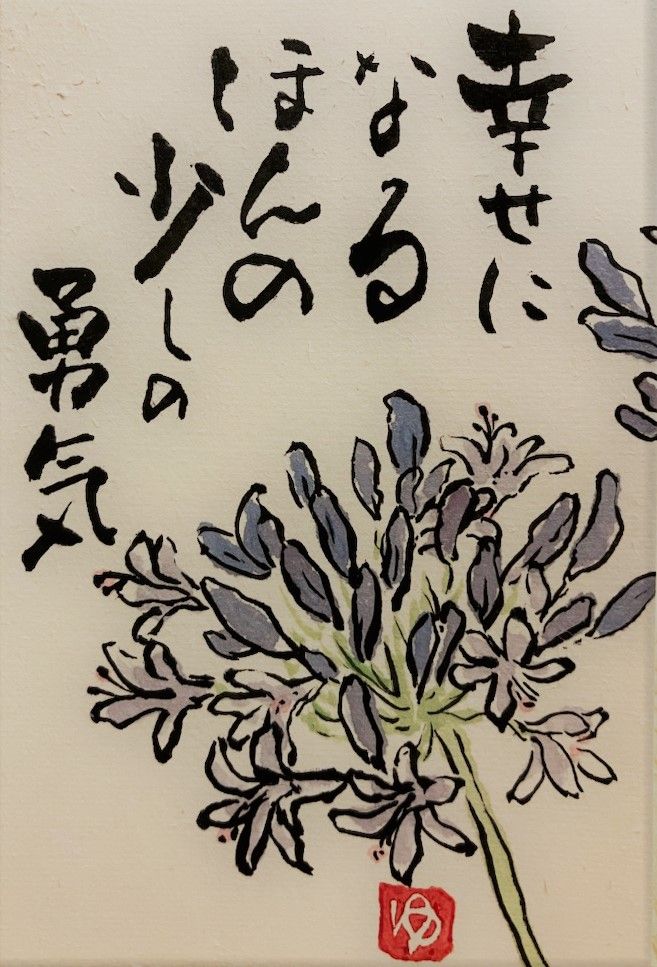 幸せに
なる
ほんの
少しの
勇気
ゆ